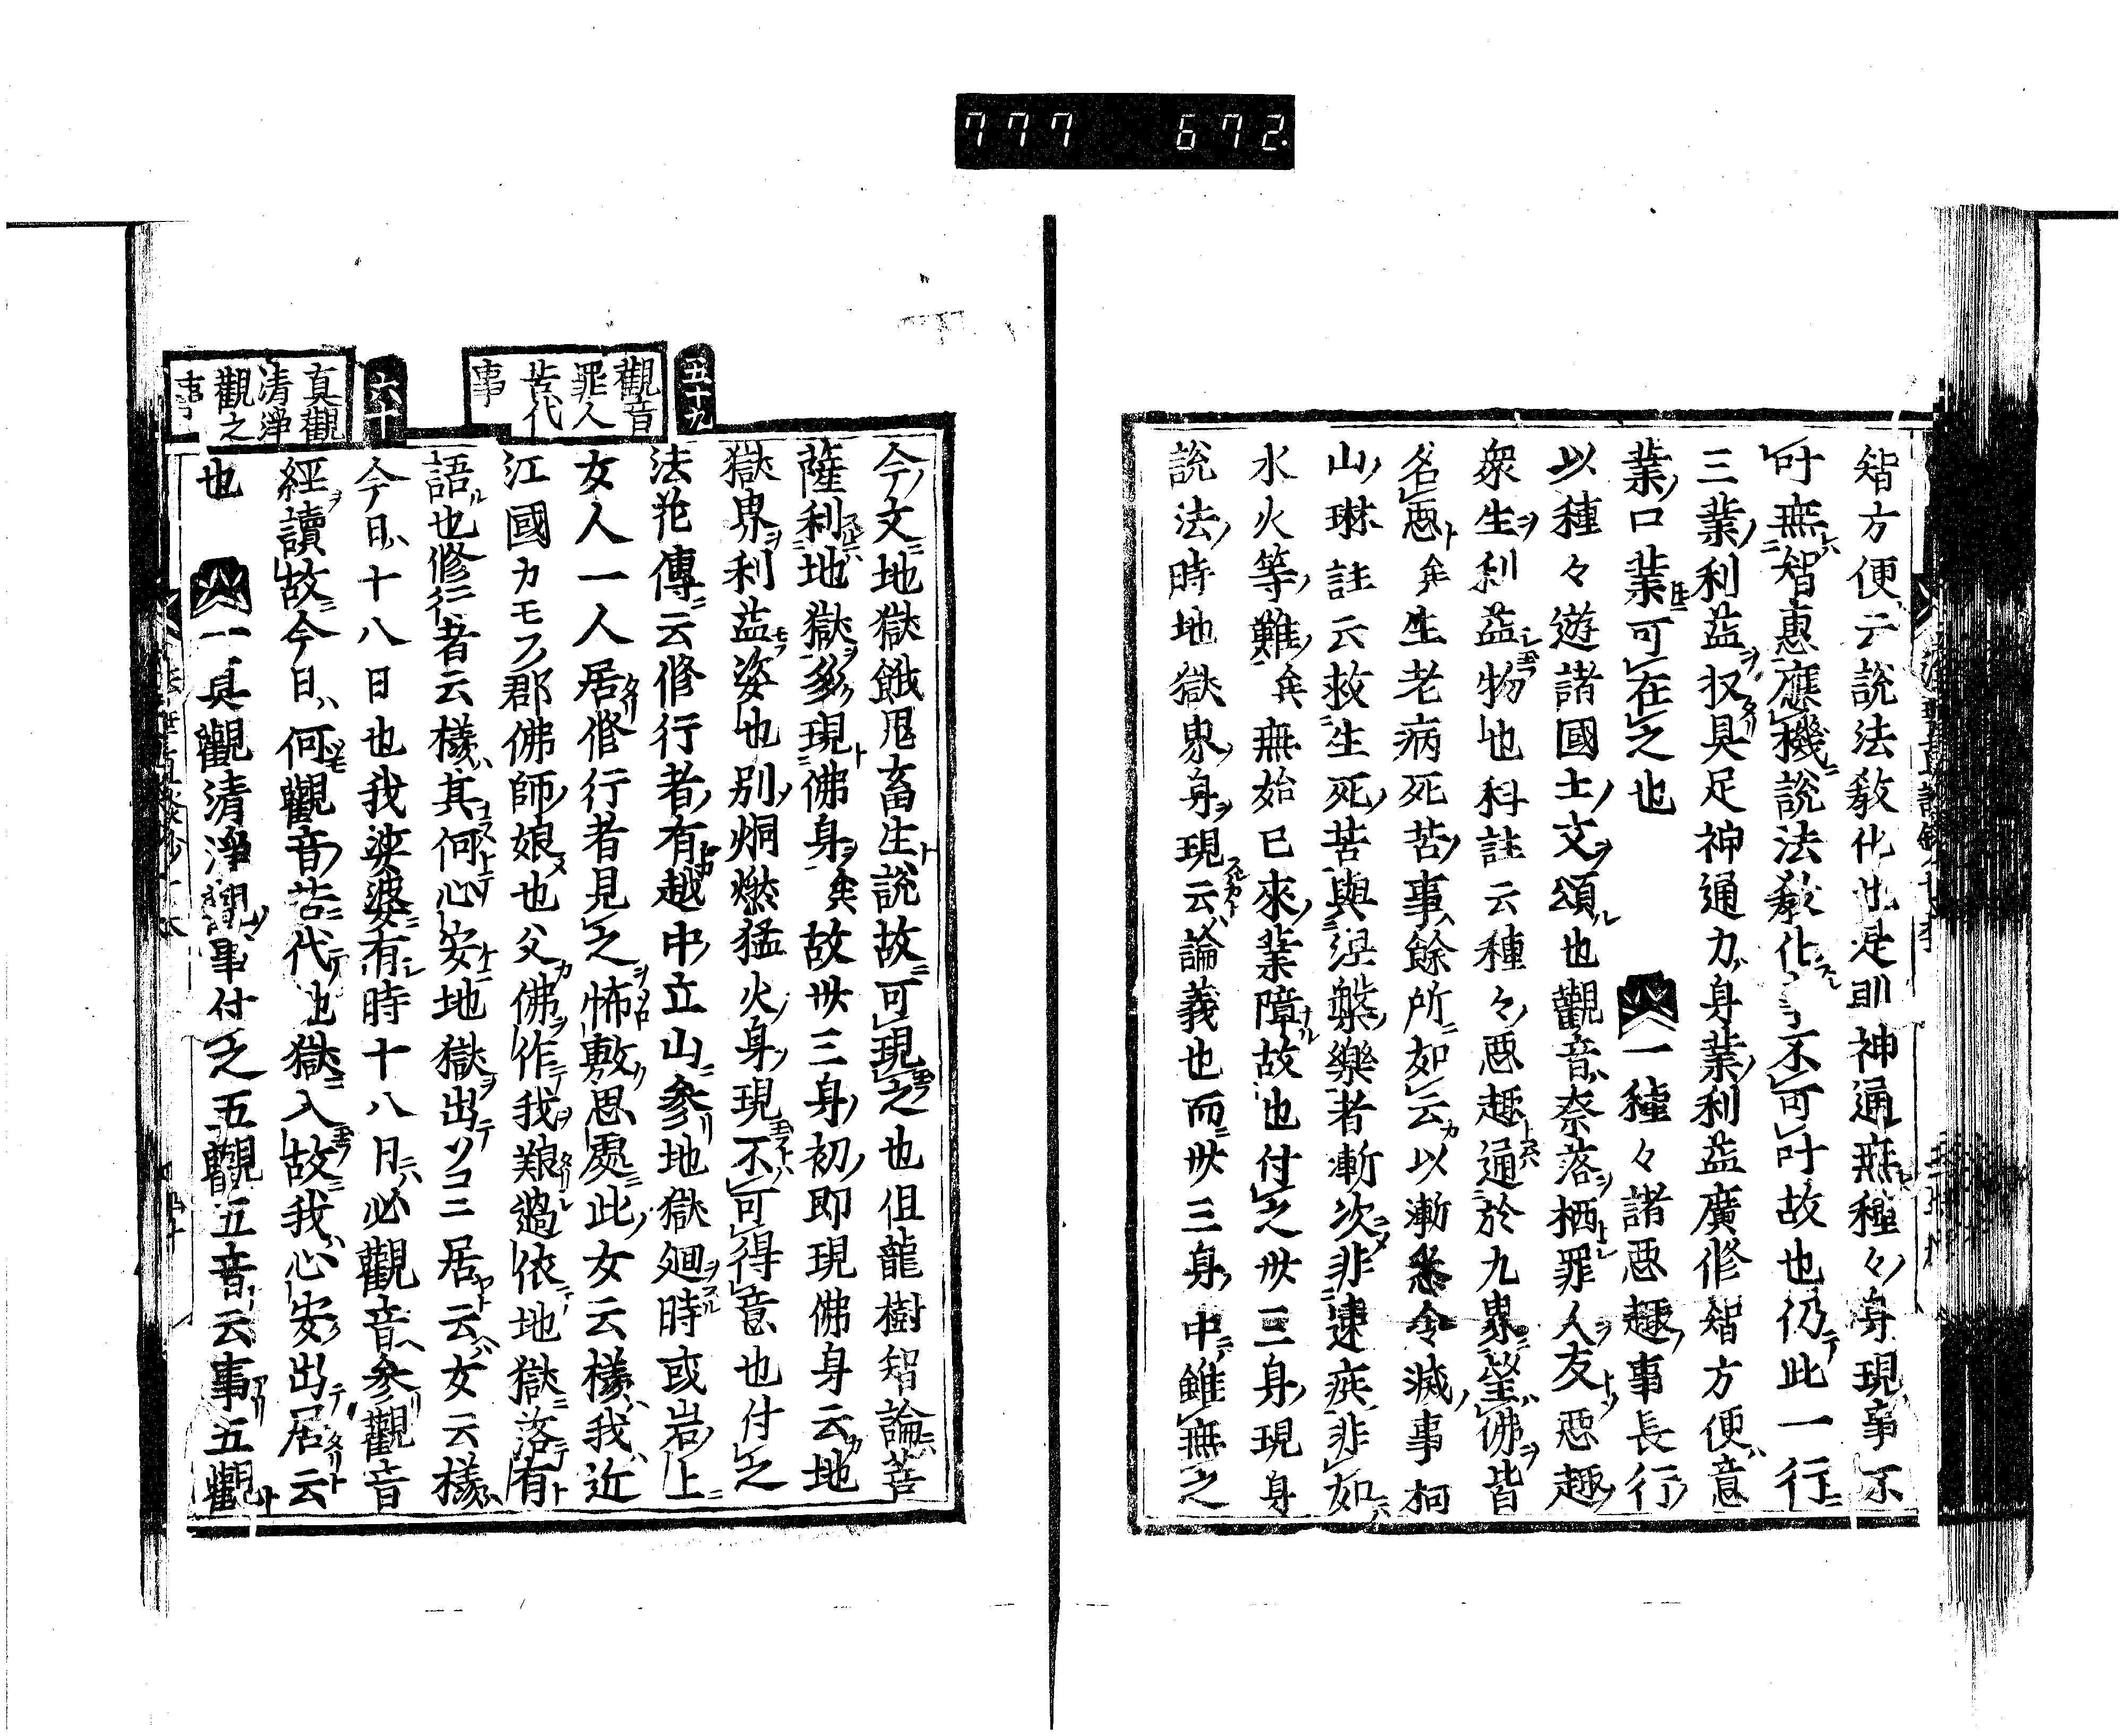 777 672
智方便云說法教化也是則神通無種々身現事不
叶無智惠應機說法教化不可叶故也仍此一行
三業利益収具足神通力身業利益廣修智方便意
業口業可在之也
一種々諸惡趣事長行
以種々遊諸國土文頌也觀音奈落栖罪人友惡趣
衆生利益物也科註云種々惡趣通於九界望佛皆
名惡𠦝生老病死苦事餘所如云以漸悉令滅事柯
山琳註云救生死苦與涅槃樂者漸次非逮疾非如
水火等難𠦝無始已來業障故也付之卅三身現身
說法時地獄界身現云論義也而卅三身中雖無之
五十九
觀音罪人苦代事
今文地獄餓鬼畜生說故可現之也但龍樹智論菩
薩利地獄多現佛身𠦝故卅三身初即現佛身云地
獄界利益姿也別烔燃猛火身現不可得意也付之
法花傳云修行者有越中立山參地獄廻時或岩上
女人一人居修行者見之怖敷思處此女云樣我近
江國カモフ郡佛師娘也父佛作我艱過依地獄落有
語也修行者云樣其何心安地獄出ソコニ居云女云樣
六十
真觀清淨觀之事
今日十八日也我娑婆有時十八日必觀音參觀音
經讀故今日何觀音苦代地獄入故我心安出居云
也
一真觀清淨觀事付之五觀五音云事五觀